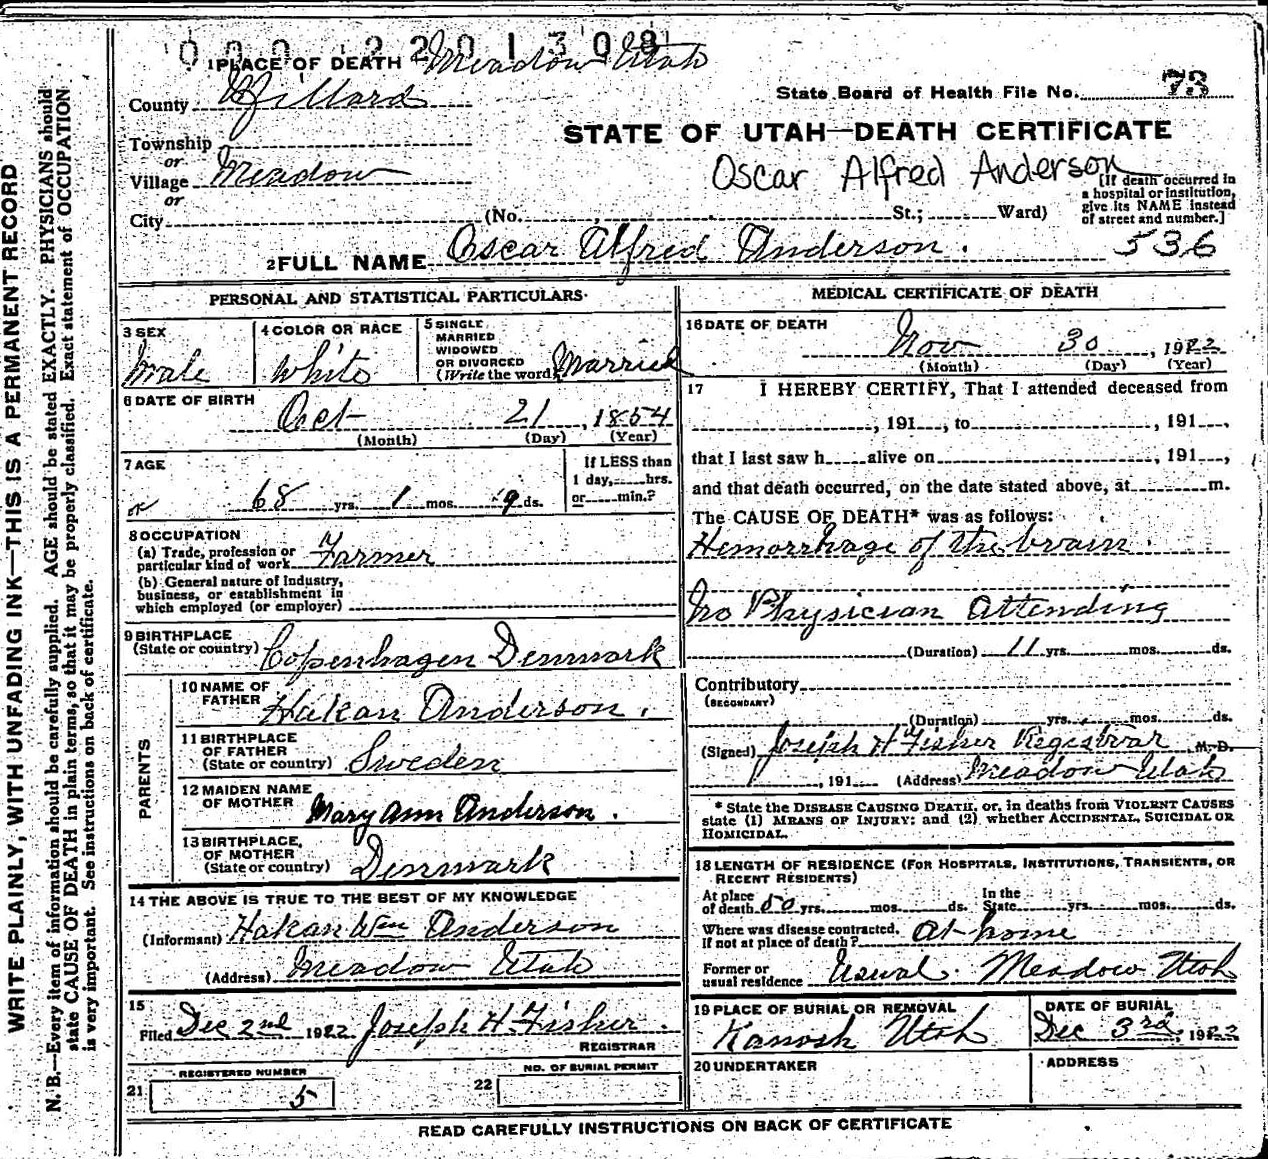 000 2201308
1 PLACE OF DEATH Meadow Utah
County Millard
State Board of Health File No. 73
STATE OF UTAH—DEATH CERTIFICATE
Township
or
Village Meadow
or
Oscar Alfred Anderson
[If death occurred in
a hospital or institution,
give its NAME instead
of street and number.]
City (No. St.; Ward)
2 FULL NAME Oscar Alfred Anderson.
536
PERSONAL AND STATISTICAL PARTICULARS
3 SEX
Male
4 COLOR OR RACE
White
5 SINGLE,
MARRIED
WIDOWED
OR DIVORCED
(Write the word) Married
6 DATE OF BIRTH
Oct 21, 1854
(Month) (Day) (Year)
7 AGE
or 68 yrs. 1 mos. 9 ds.
If LESS than
1 day, hrs.
or min.?
8 OCCUPATION
(a) Trade, profession or
particular kind of work Farmer
(b) General nature of Industry,
business, or establishment in
which employed (or employer)
9 BIRTHPLACE
(State or country) Copenhagen Denmark
PARENTS
10 NAME OF
FATHER Hakan Anderson.
11 BIRTHPLACE
OF FATHER
(State or country) Sweden
12 MAIDEN NAME
OF MOTHER Mary Ann Anderson.
13 BIRTHPLACE,
OF MOTHER
(State or country) Denmark
14 THE ABOVE IS TRUE TO THE BEST OF MY KNOWLEDGE
(Informant) Hakan Wm Anderson
(Address) Meadow Utah
15
Filed Dec 2nd 1922 Joseph H. Fisher.
REGISTRAR
21 REGISTERED NUMBER
5
22 NO. OF BURIAL PERMIT
MEDICAL CERTIFICATE OF DEATH
16 DATE OF DEATH
Nov 30, 1922
(Month) (Day) (Year)
17 I HEREBY CERTIFY, That I attended deceased from
, 191 , to , 191 ,
that I last saw h alive on , 191 ,
and that death occurred, on the date stated above, at m.
The CAUSE OF DEATH* was as follows:
Hemorrhage of the brain.
No Physician Attending
(Duration) 11 yrs. mos. ds.
Contributory
(SECONDARY)
(Duration) yrs. mos. ds.
(Signed) Joseph H Fisher Registrar, M.D.
, 191 (Address) Meadow Utah
* State the DISEASE CAUSING DEATH, or, in deaths from VIOLENT CAUSES
state (1) MEANS OF INJURY; and (2) whether ACCIDENTAL, SUICIDAL OR
HOMICIDAL.
18 LENGTH OF RESIDENCE (FOR HOSPITALS, INSTITUTIONS, TRANSIENTS, OR
RECENT RESIDENTS)
At place In the
of death 50 yrs. mos. ds. State yrs. mos. ds.
Where was disease contracted,
If not at place of death? At home
Former or
usual residence Usual. Meadow Utah
19 PLACE OF BURIAL OR REMOVAL
Kanosh Utah
DATE OF BURIAL
Dec 3rd, 1922
20 UNDERTAKER
ADDRESS
READ CAREFULLY INSTRUCTIONS ON BACK OF CERTIFICATE
WRITE PLAINLY, WITH UNFADING INK—THIS IS A PERMANENT RECORD
N. B.—Every item of information should be carefully supplied. AGE should be stated EXACTLY. PHYSICIANS should
state CAUSE OF DEATH in plain terms, so that it may be properly classified. Exact statement of OCCUPATION
is very important. See instructions on back of certificate.